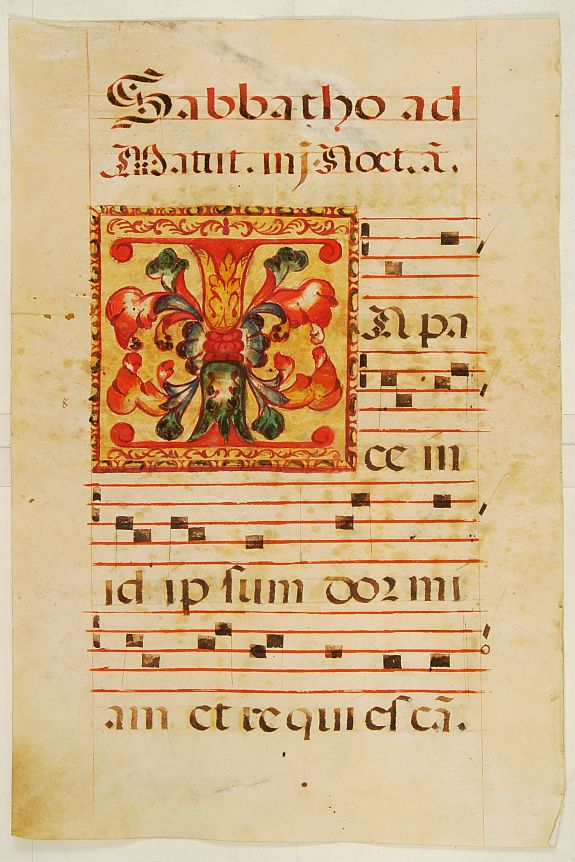 Sabbatho ad
Matut. in j. Noct. ã.
IN pa
ce in
id ip sum dor mi
am et re qui es cã.